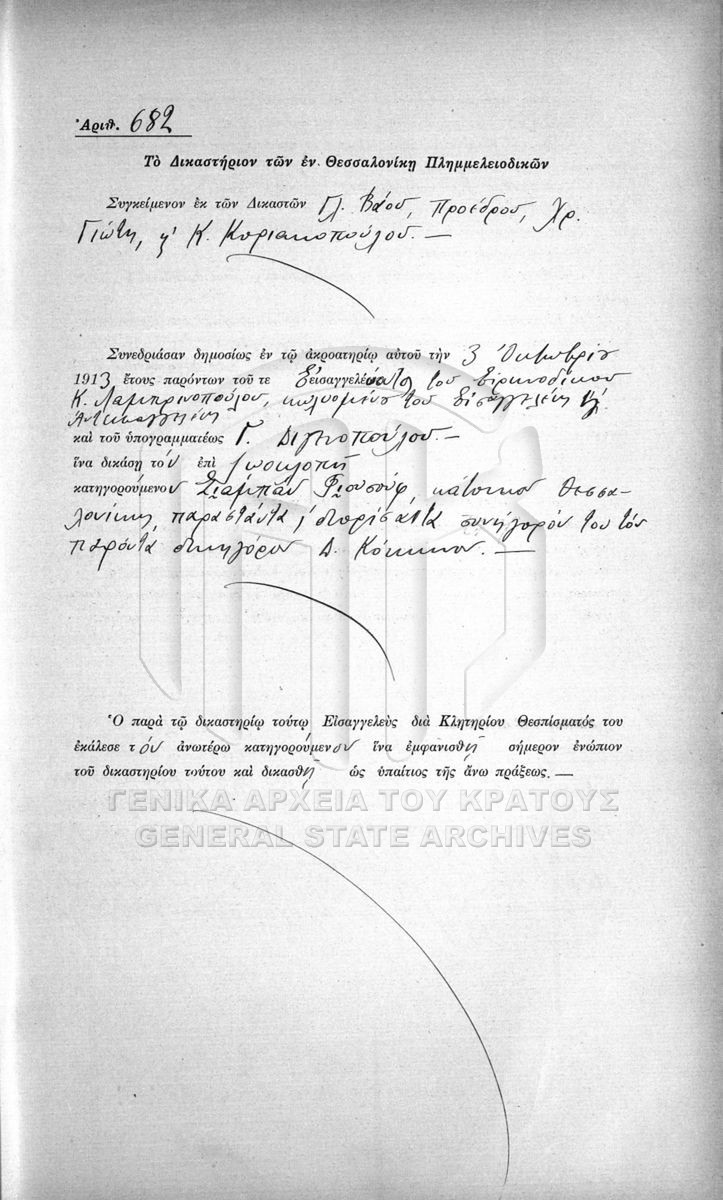 Ἀριθ. 682
Τὸ Δικαστήριον τῶν ἐν Θεσσαλονίκῃ Πλημμελειοδικῶν
Συγκείμενον ἐκ τῶν Δικαστῶν Γλ. Βάου, Προέδρου, Χρ.
Γιώτη, κ' Κ. Κυριακοπούλου. —
Συνεδριάσαν δημοσίως ἐν τῷ ἀκροατηρίῳ αὐτοῦ τὴν 3 Ὀκτωβρίου
1913 ἔτους παρόντων τοῦ τε Εἰσαγγελέως τοῦ Εἰρηνοδίκου
Κ. Λαμπρινοπούλου, κωλυομένου τοῦ Εἰσαγγελέως κ'
Ἀντεισαγγελέως
καὶ τοῦ ὑπογραμματέως Γ. Διγενοπούλου. —
ἵνα δικάσῃ τὸν ἐπὶ ζωοκλοπῇ
κατηγορούμενον Σιαμπὰν Γιουσούφ, κάτοικον Θεσσα-
λονίκης, παραστάντα κ' διορίσαντα συνήγορόν του τὸν
παρόντα δικηγόρον Δ. Κόκκινον. —
Ὁ παρὰ τῷ δικαστηρίῳ τούτῳ Εἰσαγγελεὺς διὰ Κλητηρίου Θεσπίσματός του
ἐκάλεσε τὸν ἀνωτέρω κατηγορούμενον ἵνα ἐμφανισθῇ σήμερον ἐνώπιον
τοῦ δικαστηρίου τούτου καὶ δικασθῇ ὡς ὑπαίτιος τῆς ἄνω πράξεως. —
ΓΕΝΙΚΑ ΑΡΧΕΙΑ ΤΟΥ ΚΡΑΤΟΥΣ
GENERAL STATE ARCHIVES